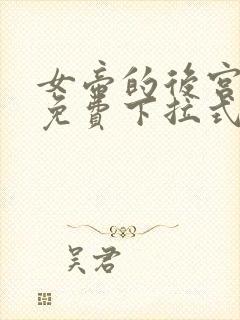 女帝的後宮
免費下拉式
吴君